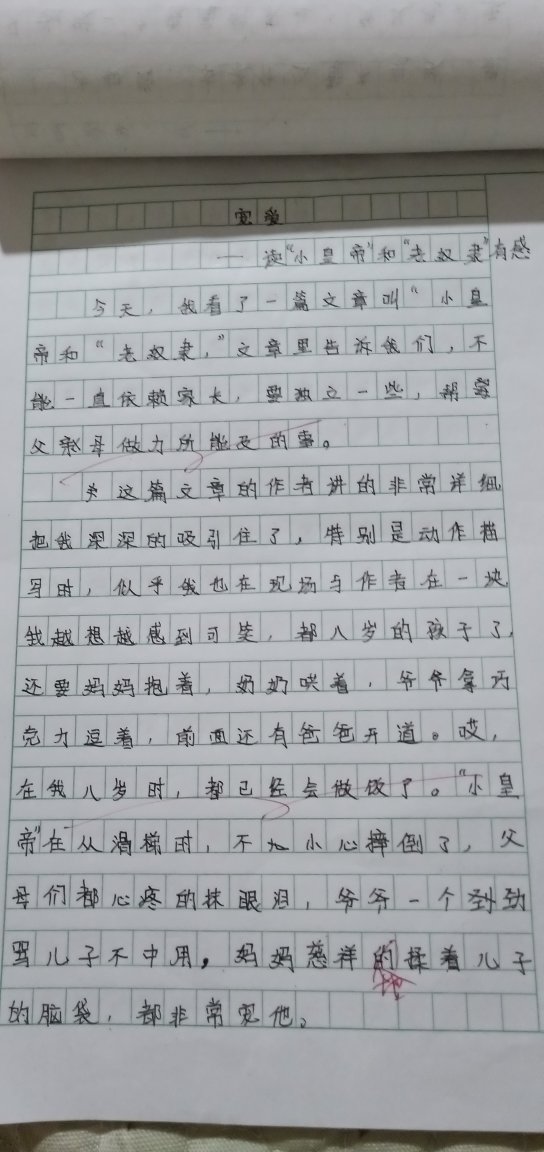 宠爱
— 读“小皇帝”和“老奴隶”有感
今天，我看了一篇文章叫“小皇
帝和“老奴隶，”文章里告诉我们，不
能一直依赖家长，要独立一些，帮
父母做力所能及的事。
这篇文章的作者讲的非常详细
把我深深的吸引住了，特别是动作描
写时，似乎我也在现场与作者在一块
我越想越感到可笑，都八岁的孩子了，
还要妈妈抱着，奶奶哄着，爷爷拿巧
克力逗着，前面还有爸爸开道。哎，
在我八岁时，都已经会做饭了。“小皇
帝”在从滑梯时，不小心摔倒了，父
母们都心疼的抹眼泪，爷爷一个劲劲
骂儿子不中用，妈妈慈祥的揉着儿子
地
的脑袋，都非常宠他。